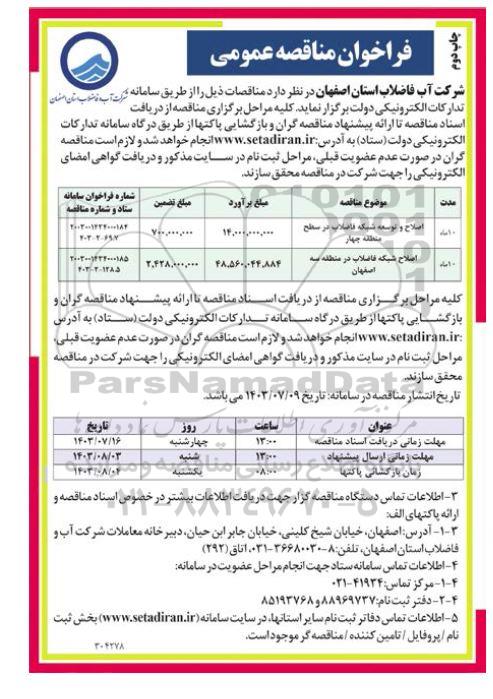 چاپ دوم
فراخوان مناقصه عمومی
شرکت آب و فاضلاب استان اصفهان
شرکت آب فاضلاب استان اصفهان در نظر دارد مناقصات ذیل را از طریق سامانه
تدارکات الکترونیکی دولت برگزار نماید. کلیه مراحل برگزاری مناقصه از دریافت
اسناد مناقصه تا ارائه پیشنهاد مناقصه گران و بازگشایی پاکتها از طریق درگاه سامانه تدارکات
الکترونیکی دولت (ستاد) به آدرس: www.setadiran.ir انجام خواهد شد و لازم است مناقصه
گران در صورت عدم عضویت قبلی، مراحل ثبت نام در سایت مذکور و دریافت گواهی امضای
الکترونیکی را جهت شرکت در مناقصه محقق سازند.
مدت موضوع مناقصه مبلغ برآورد مبلغ تضمین شماره فراخوان سامانه ستاد و شماره مناقصه
۱۰ماه اصلاح و توسعه شبکه فاضلاب در سطح منطقه چهار ۱۴,۰۰۰,۰۰۰,۰۰۰ ۷۰۰,۰۰۰,۰۰۰
۱۰ماه اصلاح شبکه فاضلاب در منطقه سه اصفهان ۴۸,۵۶۰,۰۴۴,۸۸۴ ۲,۴۲۸,۰۰۰,۰۰۰
کلیه مراحل برگزاری مناقصه از دریافت اسناد مناقصه تا ارائه پیشنهاد مناقصه گران و
بازگشایی پاکتها از طریق درگاه سامانه تدارکات الکترونیکی دولت (ستاد) به آدرس
:www.setadiran.ir انجام خواهد شد و لازم است مناقصه گران در صورت عدم عضویت قبلی،
مراحل ثبت نام در سایت مذکور و دریافت گواهی امضای الکترونیکی را جهت شرکت در مناقصه
محقق سازند.
ParsNamadData
تاریخ انتشار مناقصه در سامانه: تاریخ ۱۴۰۳/۰۷/۰۹ می باشد.
عنوان ساعت روز تاریخ
مهلت زمانی دریافت اسناد مناقصه ۱۳:۰۰ چهارشنبه ۱۴۰۳/۰۷/۱۶
مهلت زمانی ارسال پیشنهاد ۱۳:۰۰ شنبه ۱۴۰۳/۰۸/۰۳
زمان بازگشائی پاکتها ۰۸:۰۰ یکشنبه ۱۴۰۳/۰۸/۰۴
۰۲۱-۸۸۳۴۹۶۷۰-۵
۳-اطلاعات تماس دستگاه مناقصه گزار جهت دریافت اطلاعات بیشتر در خصوص اسناد مناقصه و
ارائه پاکتهای الف:
۱-۳- آدرس: اصفهان، خیابان شیخ کلینی، خیابان جابر ابن حیان، دبیرخانه معاملات شرکت آب و
فاضلاب استان اصفهان، تلفن: ۸-۳۶۶۸۰۰۳۰-۰۳۱، اتاق (۲۹۲)
۴-اطلاعات تماس سامانه ستاد جهت انجام مراحل عضویت در سامانه:
۱-۴-مرکز تماس: ۴۱۹۳۴-۰۲۱
۲-۴- دفتر ثبت نام: ۸۸۹۶۹۷۳۷ و ۸۵۱۹۳۷۶۸
۵-اطلاعات تماس دفاتر ثبت نام سایر استانها، در سایت سامانه (www.setadiran.ir) بخش ثبت
نام / پروفایل / تامین کننده / مناقصه گر موجود است.
۳۰۴۲۷۸